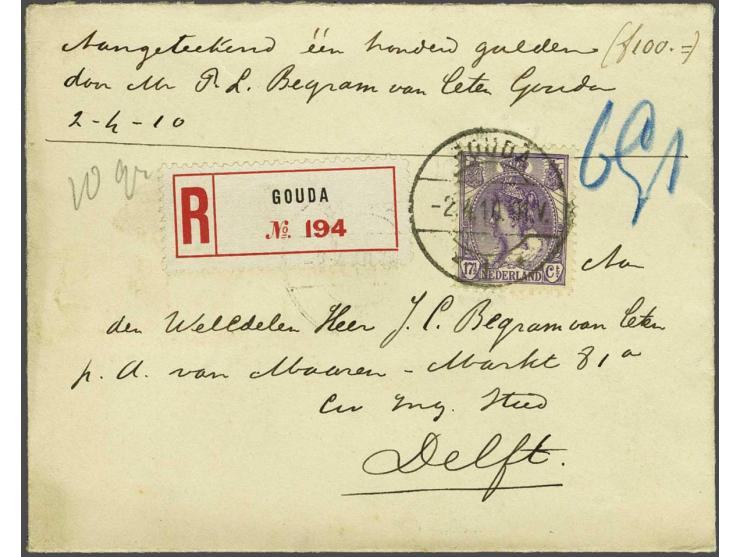 Aangeteekend één honderd gulden (f100.=)
door Mr P. L. Begram van Eeten Gouda
2-4-10
10 gr
R
GOUDA
No. 194
GOUDA
-2.4.10. V.
17½ NEDERLAND Ct
Aan
den WelEdelen Heer J. C. Begram van Eeten
p. A. van Maaren - Markt 81a
Civ Ing. Stud
Delft.